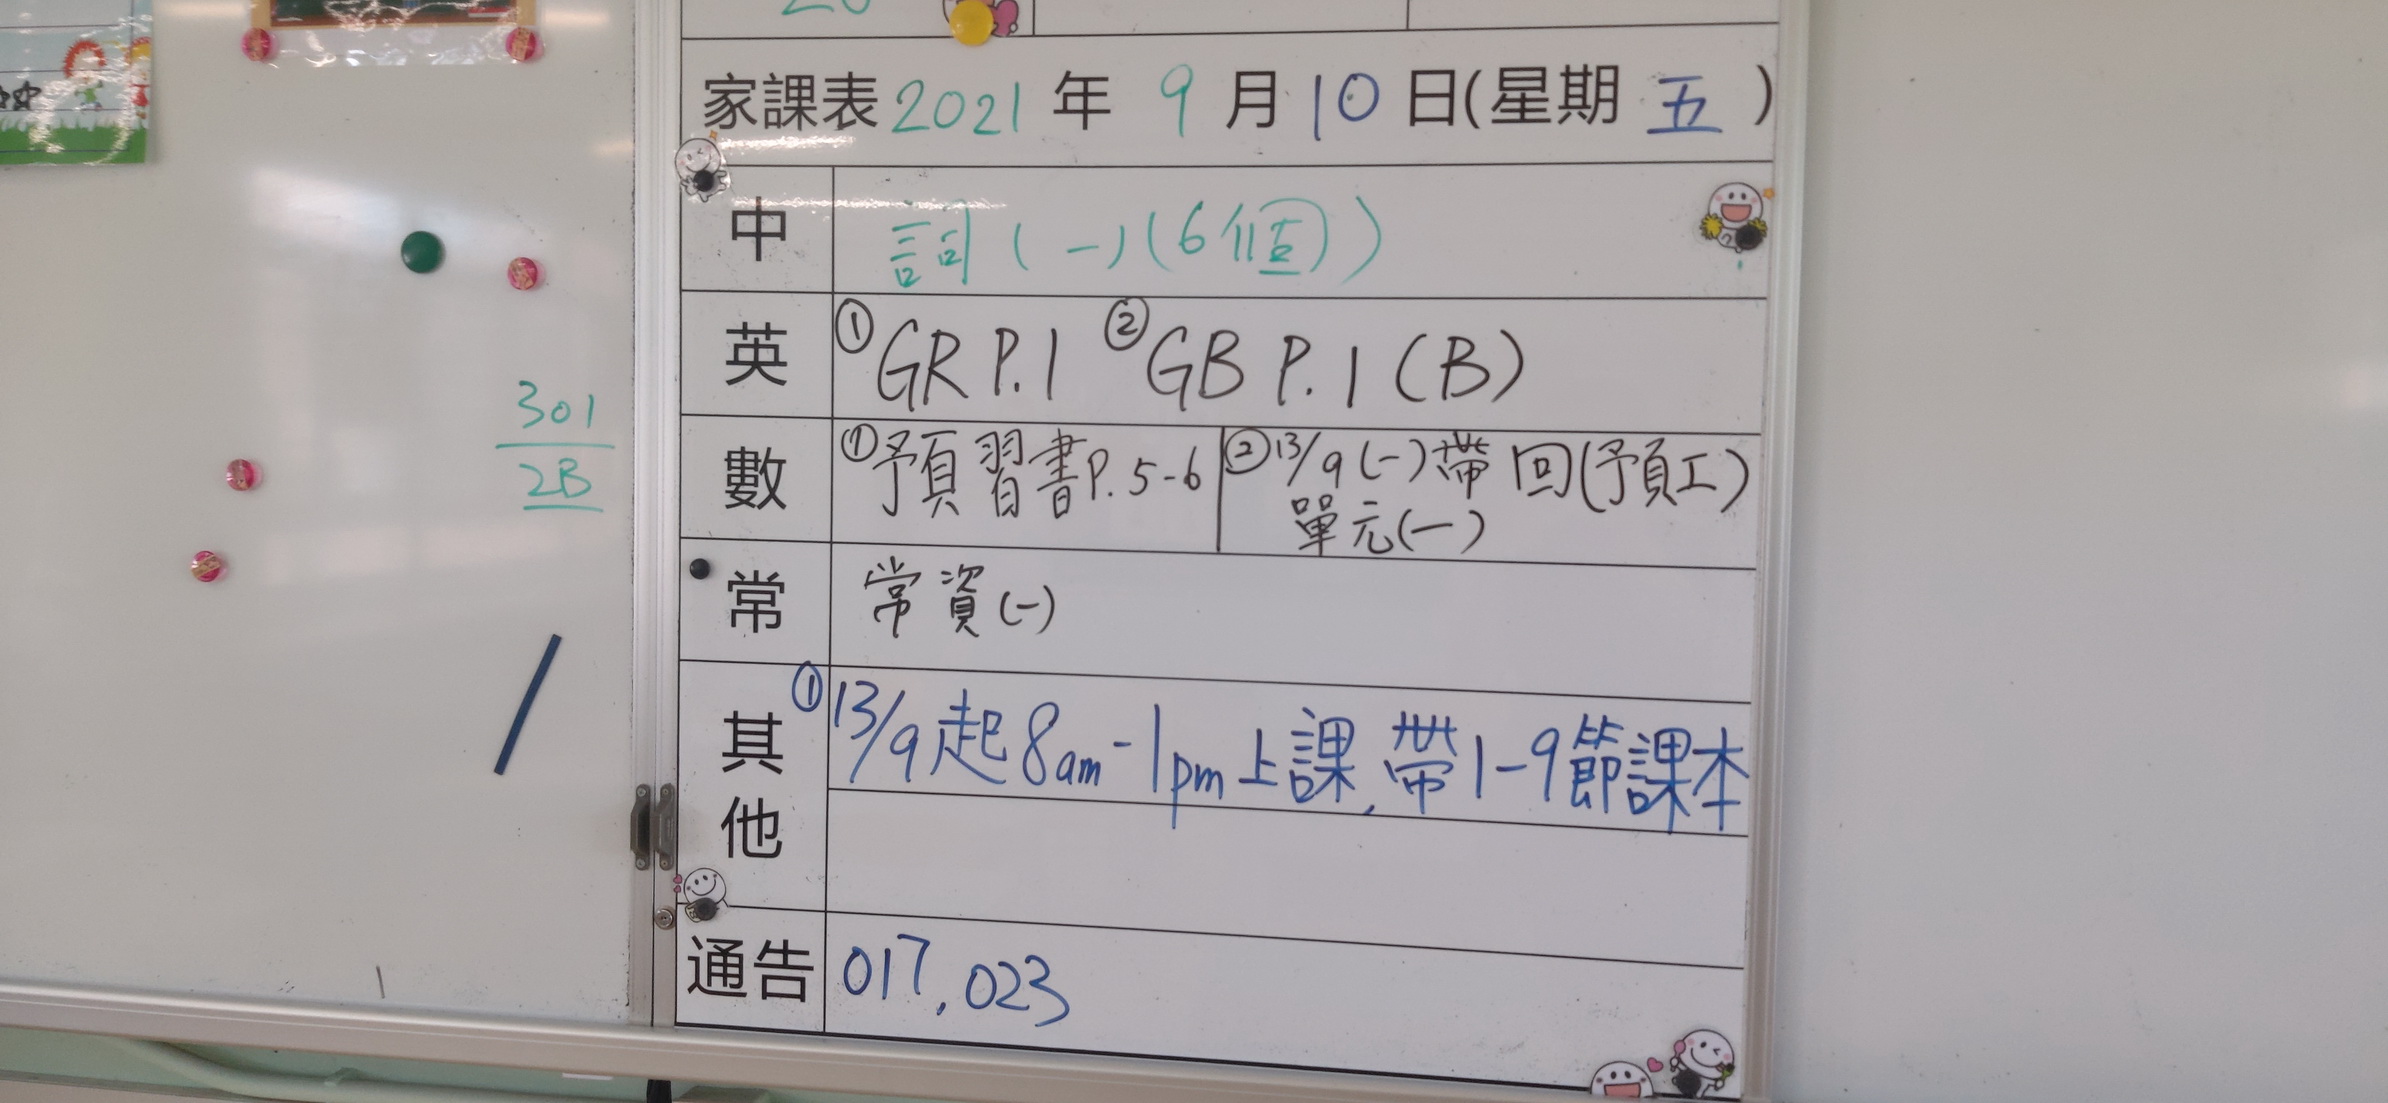 301
2B
家課表 2021 年 9 月 10 日(星期 五 )
中 詞(一)(6個)
英 ① GR P.1 ② GB P.1 (B)
數 ① 預習書P.5-6 ② 13/9(一)帶回(預工)
單元(一)
常 常資(一)
其他 ① 13/9起8am-1pm上課,帶1-9節課本
通告 017,023